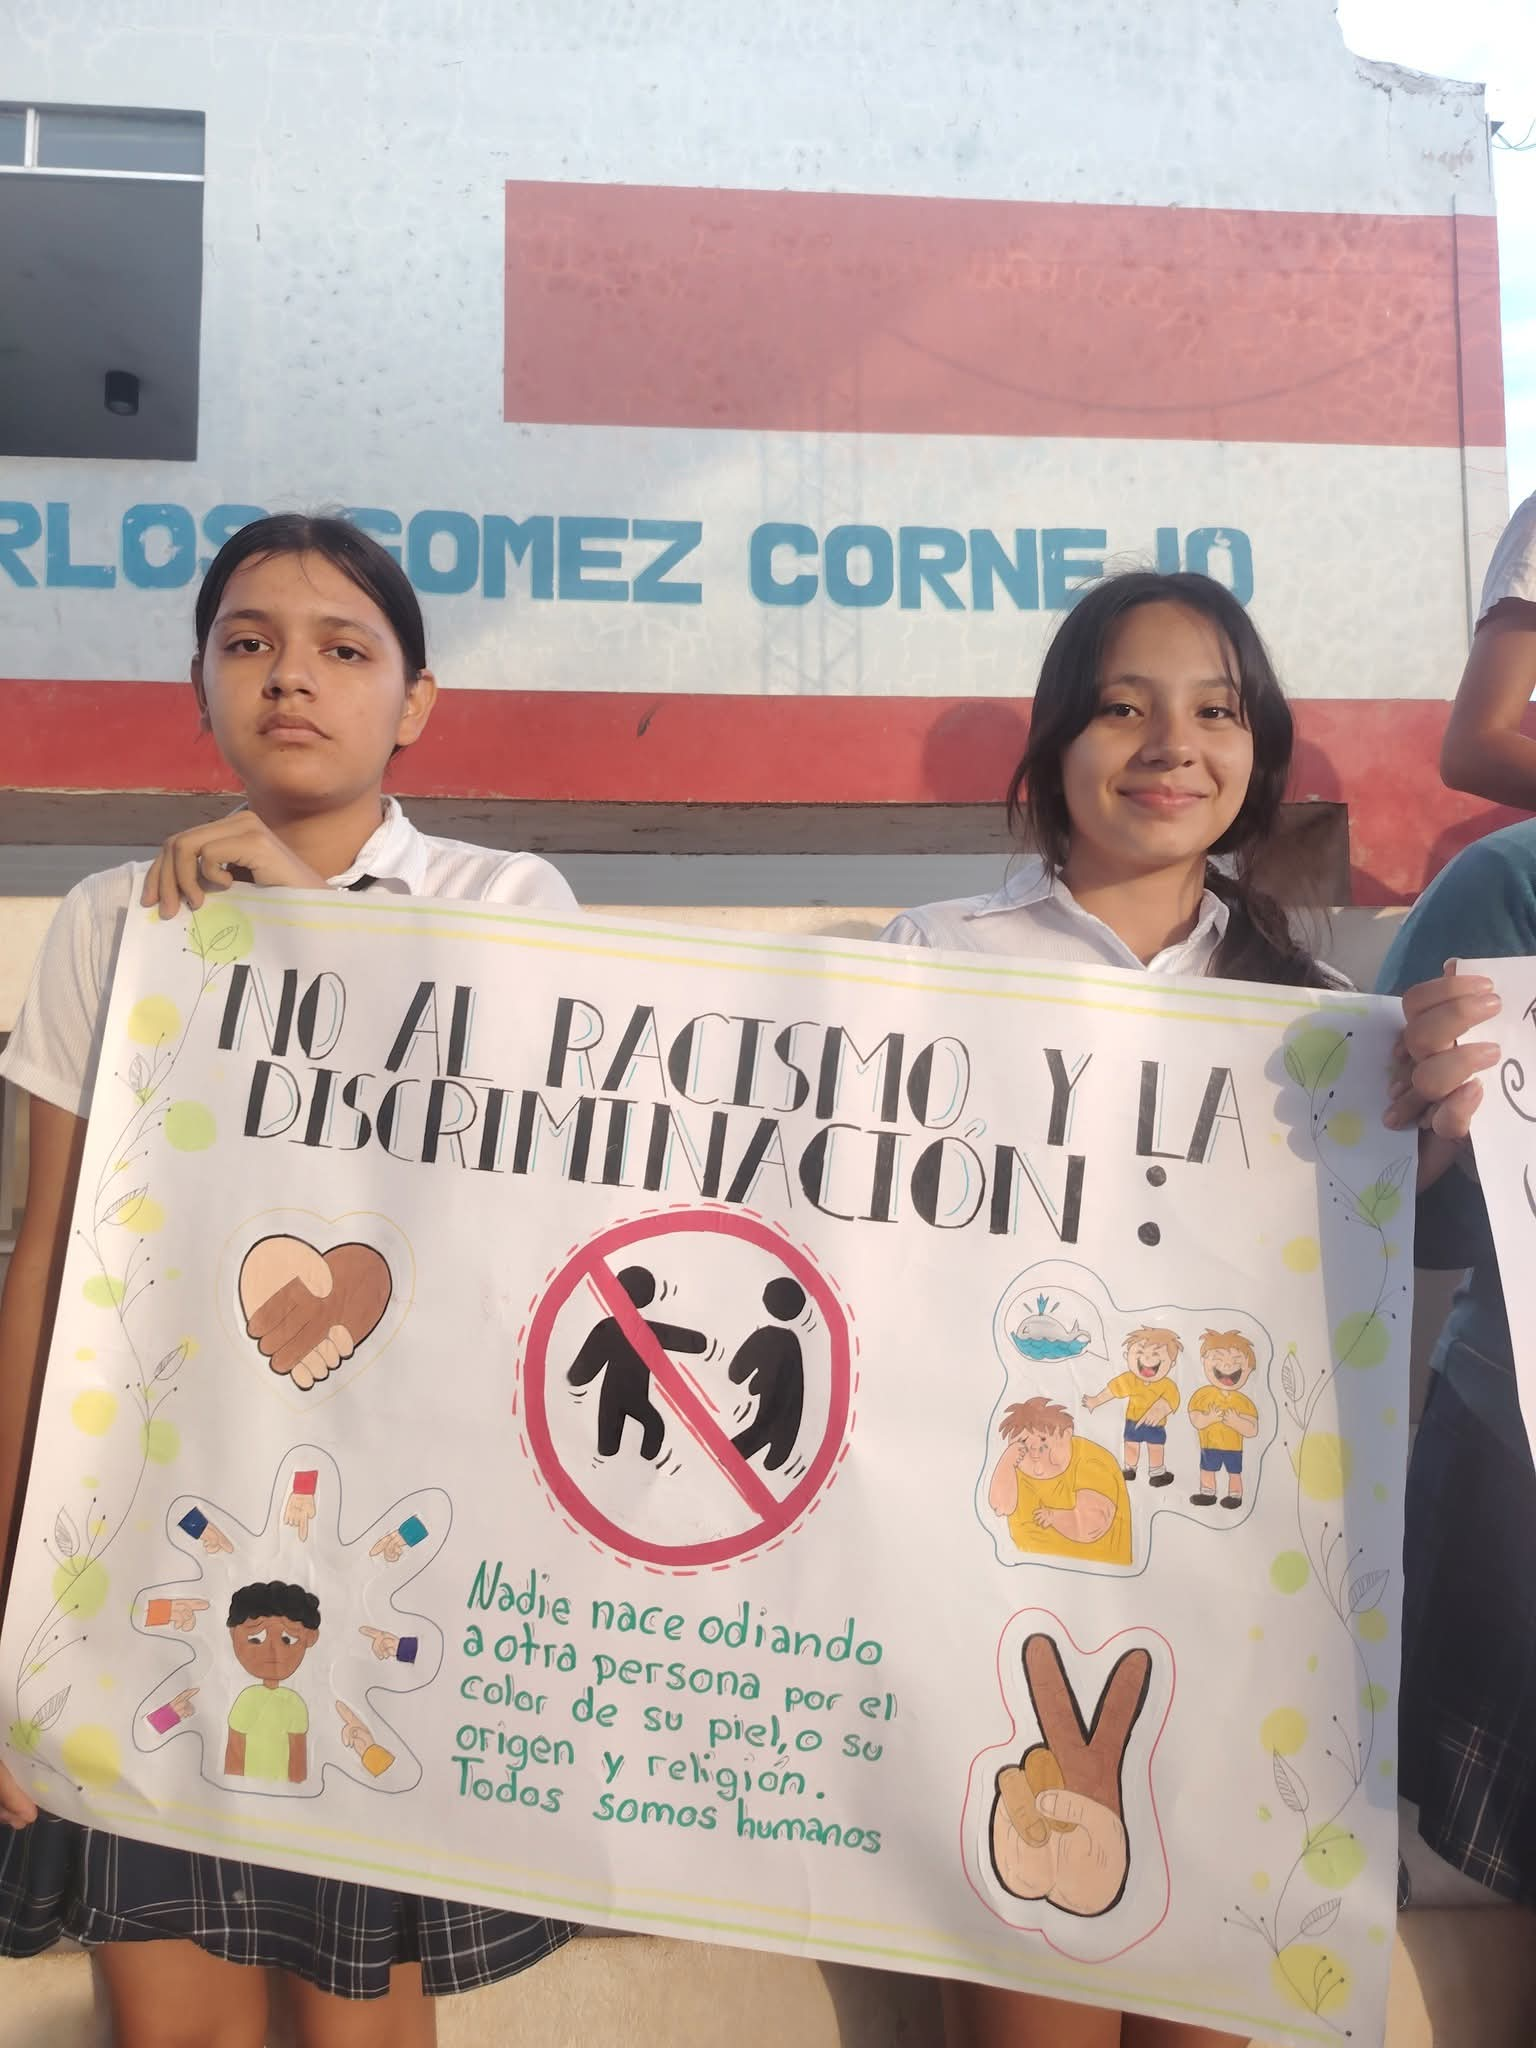 RLOS GOMEZ CORNEJO
NO AL RACISMO, Y LA
DISCRIMINACIÓN :
Nadie nace odiando
a otra persona por el
color de su piel, o su
origen y religión.
Todos somos humanos